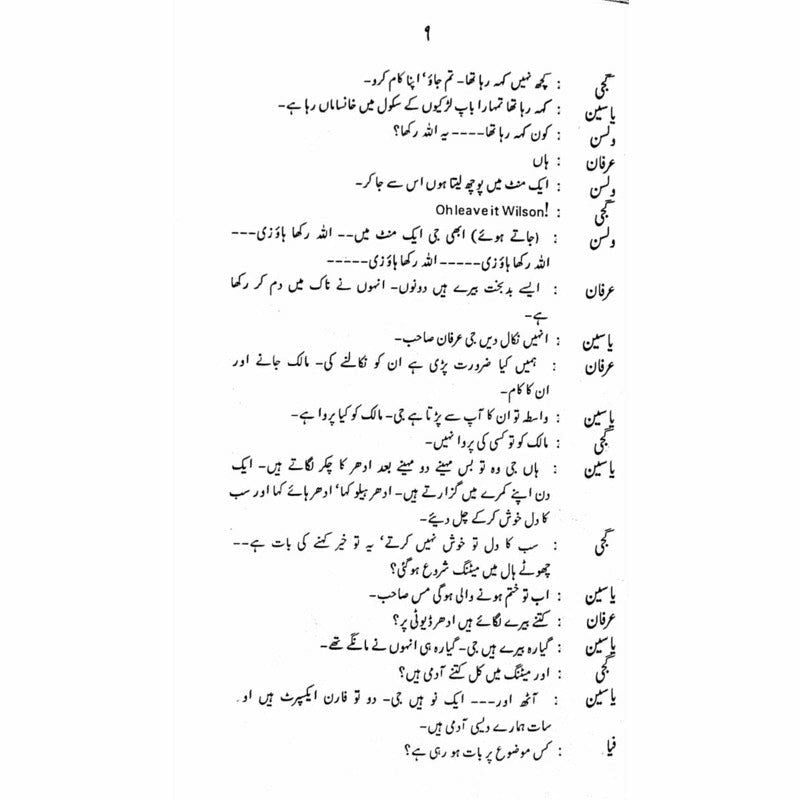 ۹
گجی : کچھ نہیں کہہ رہا تھا۔ تم جاؤ' اپنا کام کرو۔
یاسین : کہہ رہا تھا تمہارا باپ لڑکیوں کے سکول میں خانساماں رہا ہے۔
ولسن : کون کہہ رہا تھا۔۔۔۔ یہ اللہ رکھا؟
عرفان : ہاں
ولسن : ایک منٹ میں پوچھ لیتا ہوں اس سے جا کر۔
گجی : Oh leave it Wilson!
ولسن : (جاتے ہوئے) ابھی جی ایک منٹ میں۔۔ اللہ رکھا ہاؤ زی۔۔۔
اللہ رکھا ہاؤ زی۔۔۔۔۔ اللہ رکھا ہاؤ زی۔۔۔۔۔
عرفان : ایسے بدبخت بیرے ہیں دونوں۔ انہوں نے ناک میں دم کر رکھا
ہے۔
یاسین : انہیں نکال دیں جی عرفان صاحب۔
عرفان : ہمیں کیا ضرورت پڑی ہے ان کو نکالنے کی۔ مالک جانے اور
ان کا کام۔
یاسین : واسطہ تو ان کا آپ سے پڑتا ہے جی۔ مالک کو کیا پروا ہے۔
گجی : مالک کو تو کسی کی پروا نہیں۔
یاسین : ہاں جی وہ تو بس مہینے دو مہینے بعد ادھر کا چکر لگاتے ہیں۔ ایک
دن اپنے کمرے میں گزارتے ہیں۔ ادھر ہیلو کہا' ادھر ہائے کہا اور سب
کا دل خوش کر کے چل دیئے۔
گجی : سب کا دل تو خوش نہیں کرتے' یہ تو خیر کہنے کی بات ہے۔۔
چھوٹے ہال میں میٹنگ شروع ہو گئی؟
یاسین : اب تو ختم ہونے والی ہو گی مس صاحب۔
عرفان : کتنے بیرے لگائے ہیں ادھر ڈیوٹی پر؟
یاسین : گیارہ بیرے ہیں جی۔ گیارہ ہی انہوں نے مانگے تھے۔
گجی : اور میٹنگ میں کل کتنے آدمی ہیں؟
یاسین : آٹھ اور۔۔۔ ایک نو ہیں جی۔ دو تو فارن ایکسپرٹ ہیں او
سات ہمارے دیسی آدمی ہیں۔
فیا : کس موضوع پر بات ہو رہی ہے؟